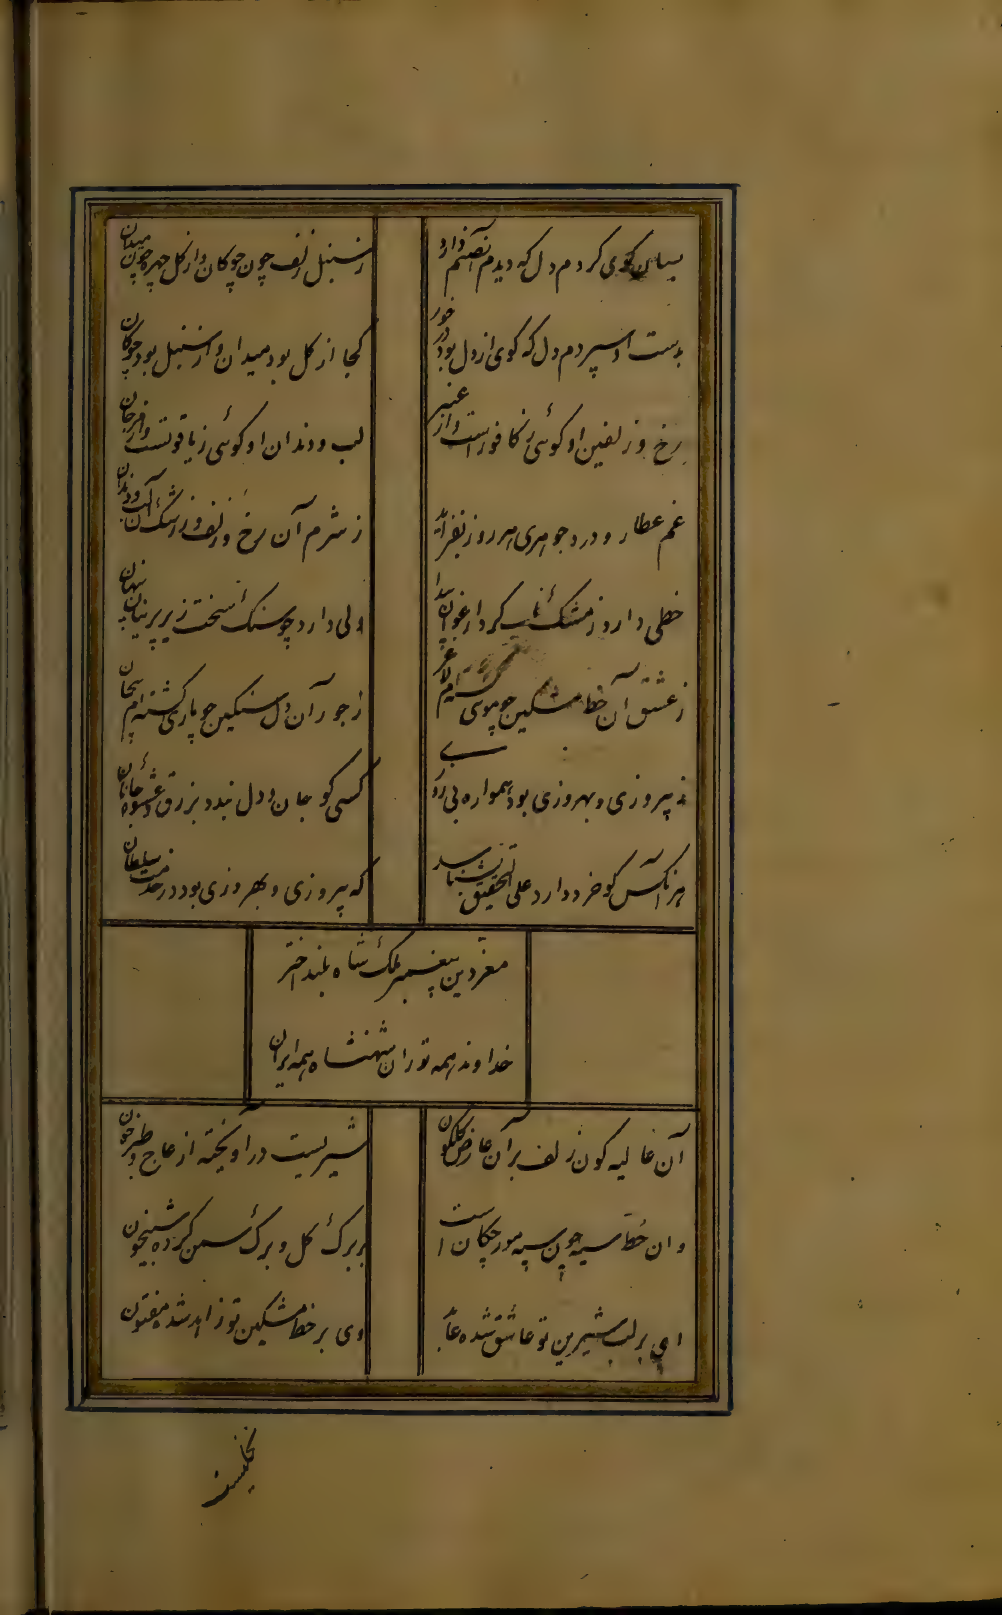 بسان کوی کردم دل که دیدم آن صنم دارد
ز سنبل زلف چون چوکان و از کل چهره چون میدان
بدست او سپردم دل که کوی از دل بود در خور
کجا از کل بود میدان و از سنبل بود چوکان
رخ و زلفین او کوئی ز کافور است و از عنبر
لب و دندان او کوئی ز یاقوتست و از مرجان
غم عطار و درد جوهری هر روز بفزاید
ز شرم آن رخ و زلف و ز رشک آن لب و دندان
خطی دارد ز مشک ناب کرد ارغوان پیدا
دلی دارد چو سنک سخت زیر پرنیان پنهان
ز عشق آن خط مشکین چو موی کشته‌ام لاغر
ز جور آن دل سنکین چو یاری کشته‌ام پیچان
نه پیروزی و بهروزی بود همواره بی زرق
کسی کو جان و دل بندد بزرق و عشوه جانان
هر آنکس کو خرد دارد علی التحقیق بشناسد
که پیروزی و بهروزی بود در خدمت سلطان
معز دین پیغمبر ملک شاه بلند اختر
خداوند همه توران شهنشاه همه ایران
آن غالیه کون زلف بر آن عارض کلکون
شیریست در آویخته از عاج و طبرخون
وان خط سیه چون سپه مورچکان است
بر برک کل و برک سمن کرده شبیخون
ای بر لب شیرین تو عاشق شده عابد
وی بر خط مشکین تو زاهد شده مفتون